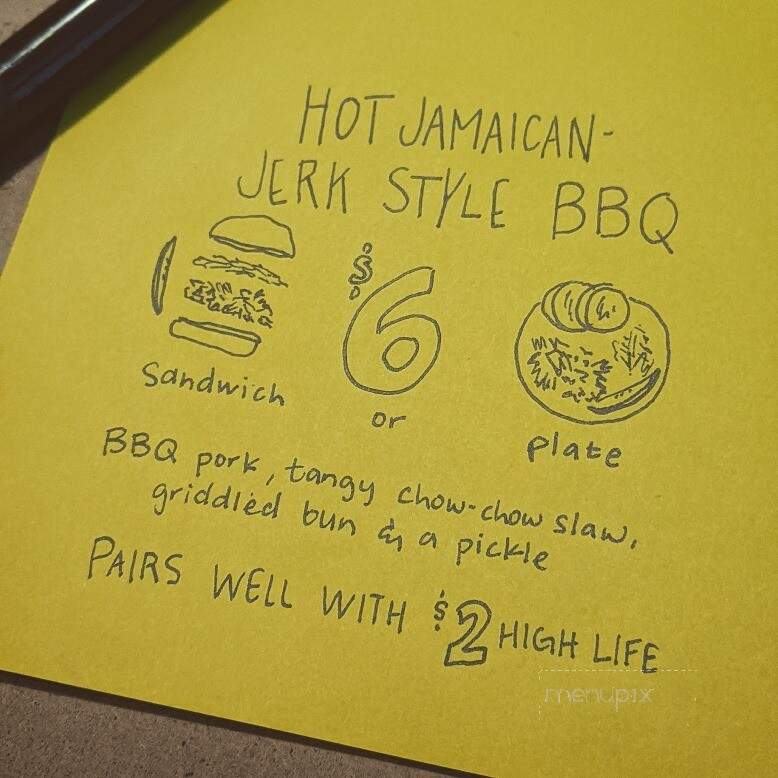 HOT JAMAICAN-
JERK STYLE BBQ
$6
Sandwich
or
plate
BBQ pork, tangy chow-chow slaw,
griddled bun & a pickle
PAIRS WELL WITH $2 HIGH LIFE
menupix